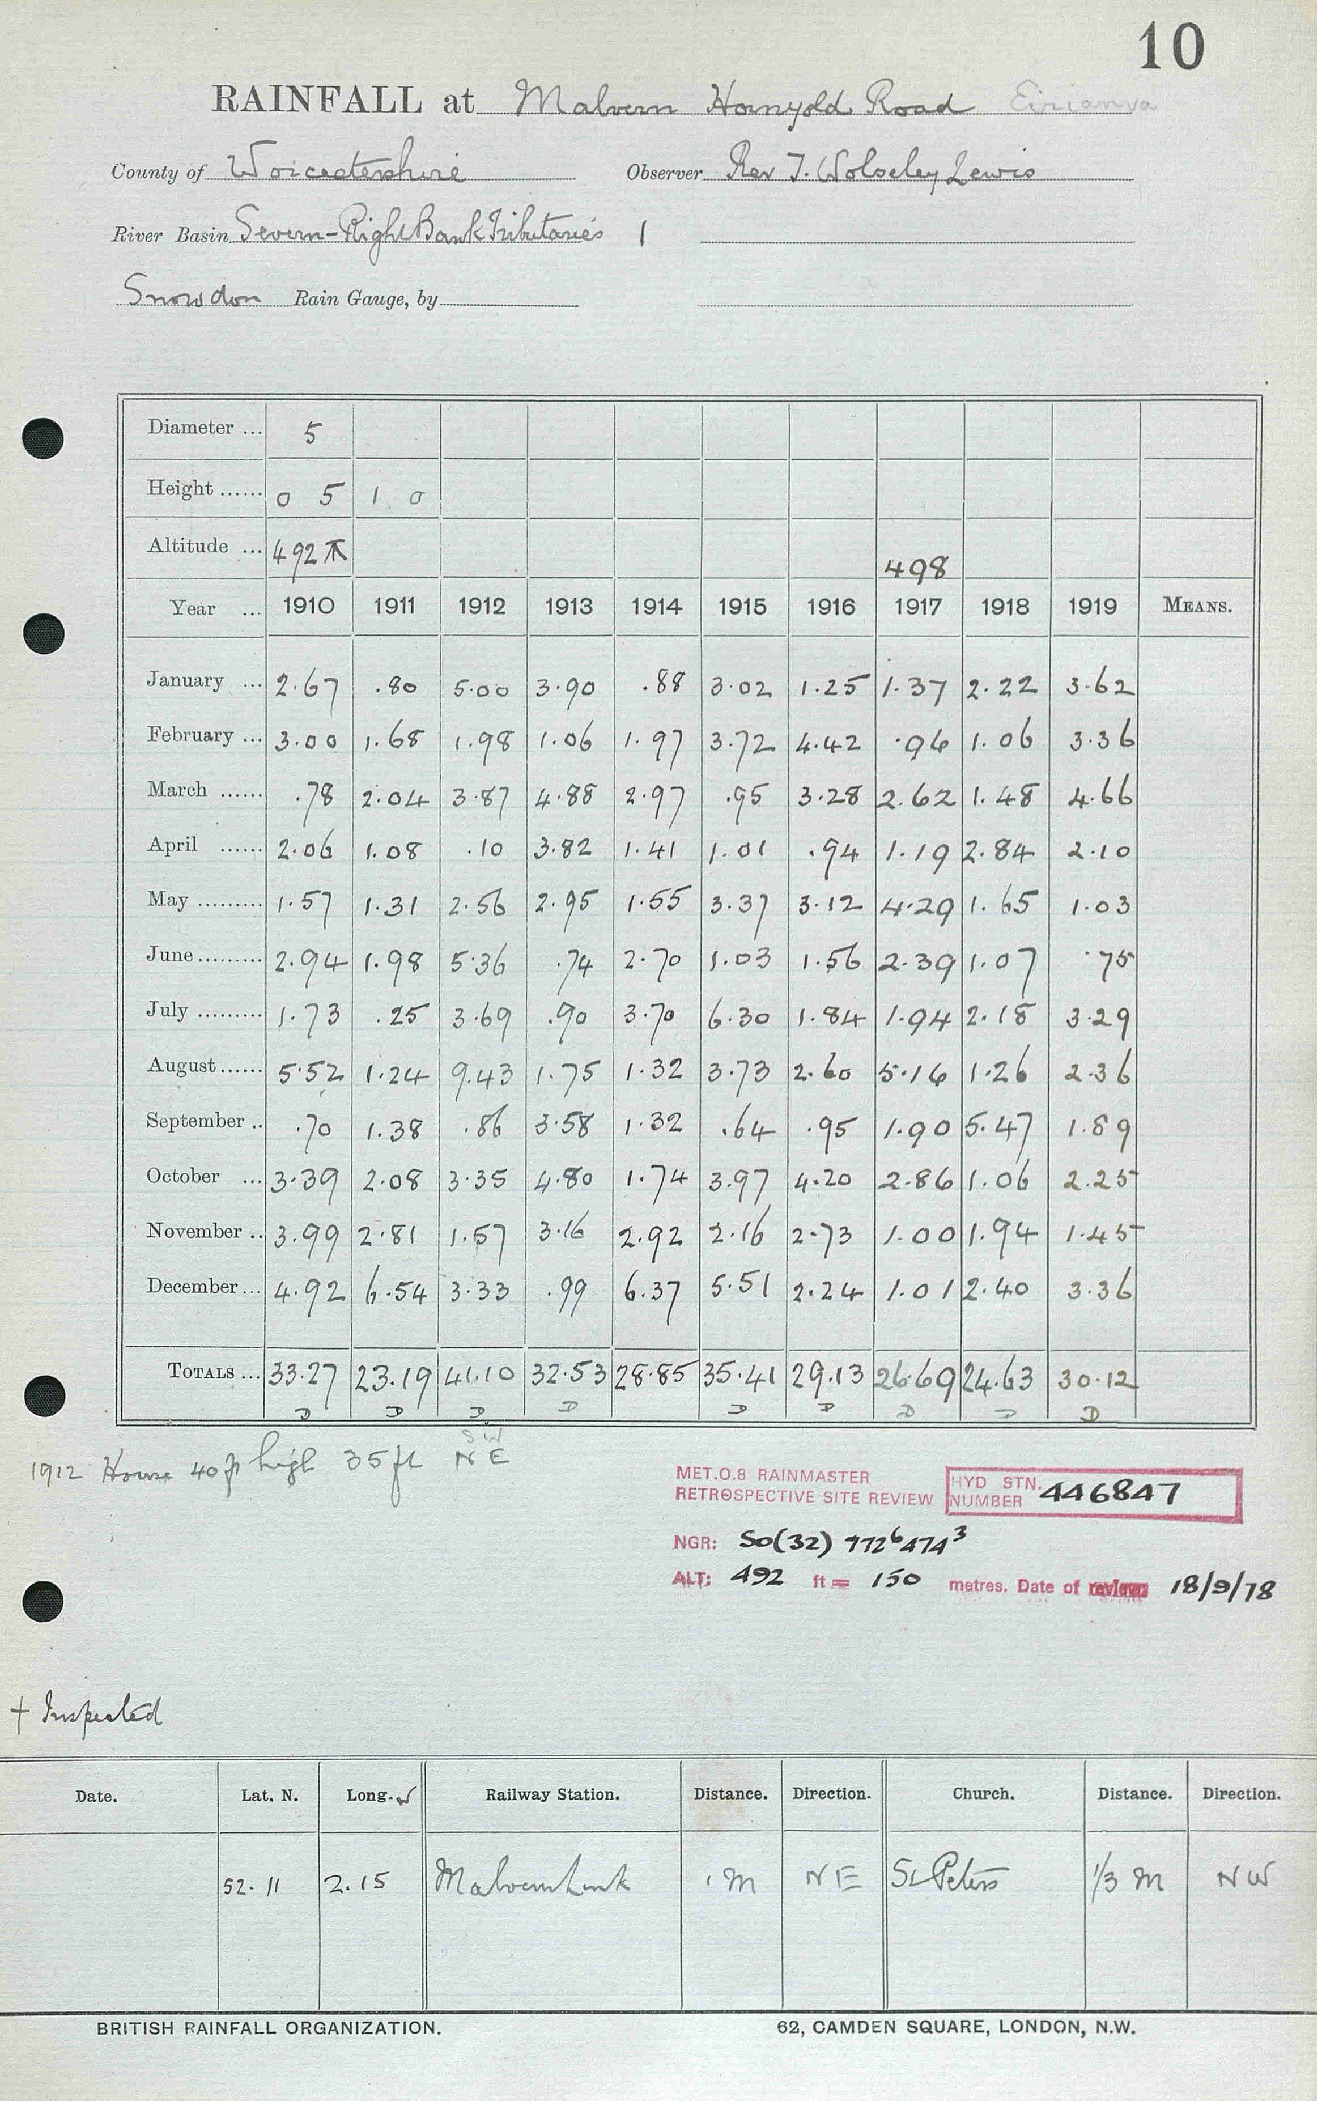 10
RAINFALL at Malvern Hornyold Road
County of Worcestershire Observer Rev T. Wolseley Lewis
River Basin Severn-Right Bank Tributaries 1
Snowdon Rain Gauge, by
Diameter ... 5
Height ...... 0 5 1 0
Altitude ... 492 498
Year ... 1910 1911 1912 1913 1914 1915 1916 1917 1918 1919 MEANS.
January ... 2.67 .80 5.00 3.90 .88 3.02 1.25 1.37 2.22 3.62
February ... 3.00 1.68 1.98 1.06 1.97 3.72 4.42 .96 1.06 3.36
March ...... .78 2.04 3.87 4.88 2.97 .95 3.28 2.62 1.48 4.66
April ...... 2.06 1.08 .10 3.82 1.41 1.01 .94 1.19 2.84 2.10
May ......... 1.57 1.31 2.56 2.95 1.55 3.37 3.12 4.29 1.65 1.03
June ......... 2.94 1.98 5.36 .74 2.70 1.03 1.56 2.39 1.07 .75
July ......... 1.73 .25 3.69 .90 3.70 6.30 1.84 1.94 2.18 3.29
August ...... 5.52 1.24 9.43 1.75 1.32 3.73 2.60 5.16 1.26 2.36
September .. .70 1.38 .86 3.58 1.32 .64 .95 1.90 5.47 1.89
October ... 3.39 2.08 3.35 4.80 1.74 3.97 4.20 2.86 1.06 2.25
November .. 3.99 2.81 1.57 3.16 2.92 2.16 2.73 1.00 1.94 1.45
December ... 4.92 6.54 3.33 .99 6.37 5.51 2.24 1.01 2.40 3.36
TOTALS ... 33.27 23.19 41.10 32.53 28.85 35.41 29.13 26.69 24.63 30.12
D D D D D D D D D
SW
1912 House 40ft high 35 ft NE
MET.O.8 RAINMASTER
RETROSPECTIVE SITE REVIEW
HYD STN.
NUMBER 446847
NGR: SO(32) 7726 4743
ALT: 492 ft = 150 metres. Date of review 18/9/78
† Inspected
Date. Lat. N. Long. W Railway Station. Distance. Direction. Church. Distance. Direction.
52. 11 2.15 Malvern Link 1 M NE St Peters 1/3 M NW
BRITISH RAINFALL ORGANIZATION. 62, CAMDEN SQUARE, LONDON, N.W.